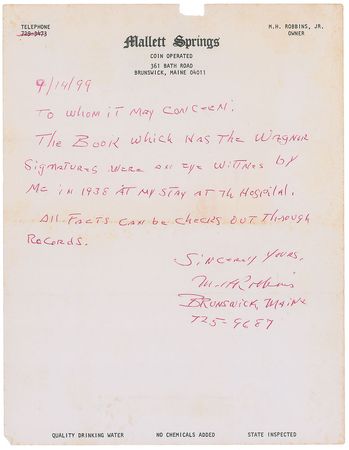 TELEPHONE
729-3473
M.H. ROBBINS, JR.
OWNER
Mallett Springs
COIN OPERATED
361 BATH ROAD
BRUNSWICK, MAINE 04011
9/14/99
TO WHOM IT MAY CONCERN:
THE BOOK WHICH HAS THE WAGNER
SIGNATURES WERE AN EYE WITNES BY
ME IN 1938 AT MY STAY AT Th HOSPITAL.
All FACTS CAN BE CHECKS OUT THROUGH
RECORDS.
SINCERELY YOURS,
M.H. Robbins
BRUNSWICK, MAINE
725-9687
QUALITY DRINKING WATER
NO CHEMICALS ADDED
STATE INSPECTED